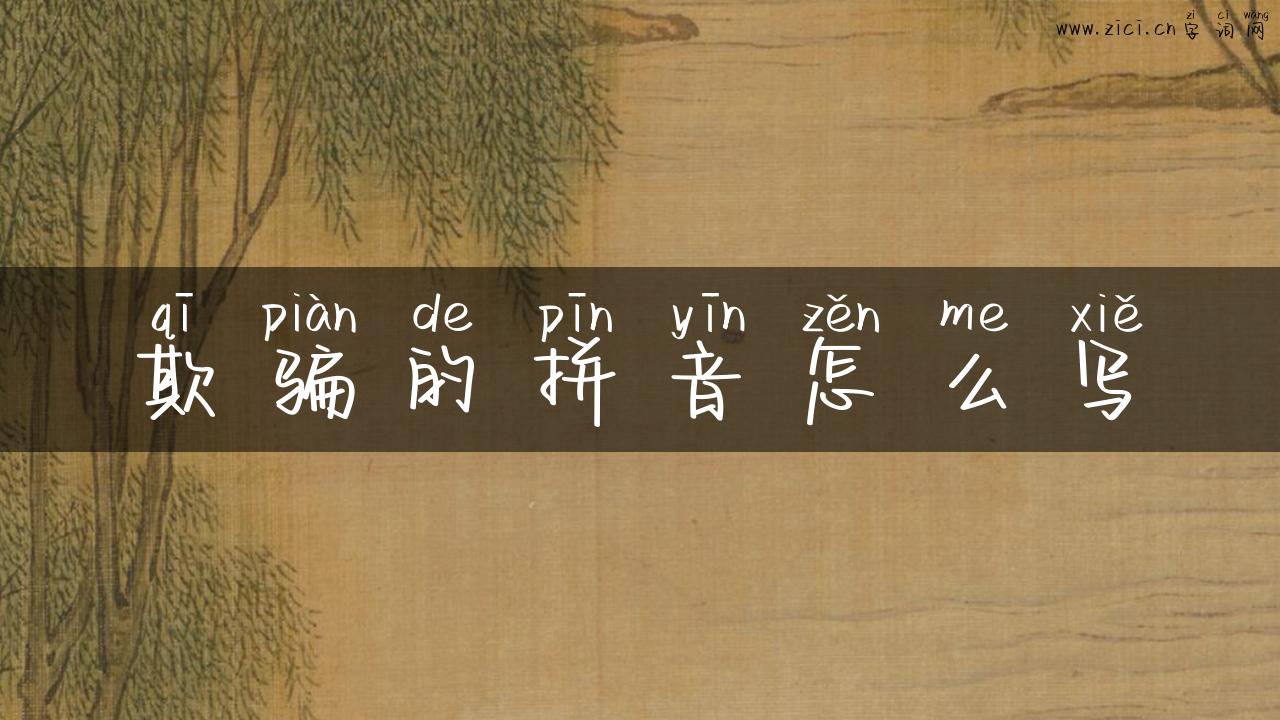 zì cí wǎng
www.zici.cn字词网
qī piàn de pīn yīn zěn me xiě
欺骗的拼音怎么写